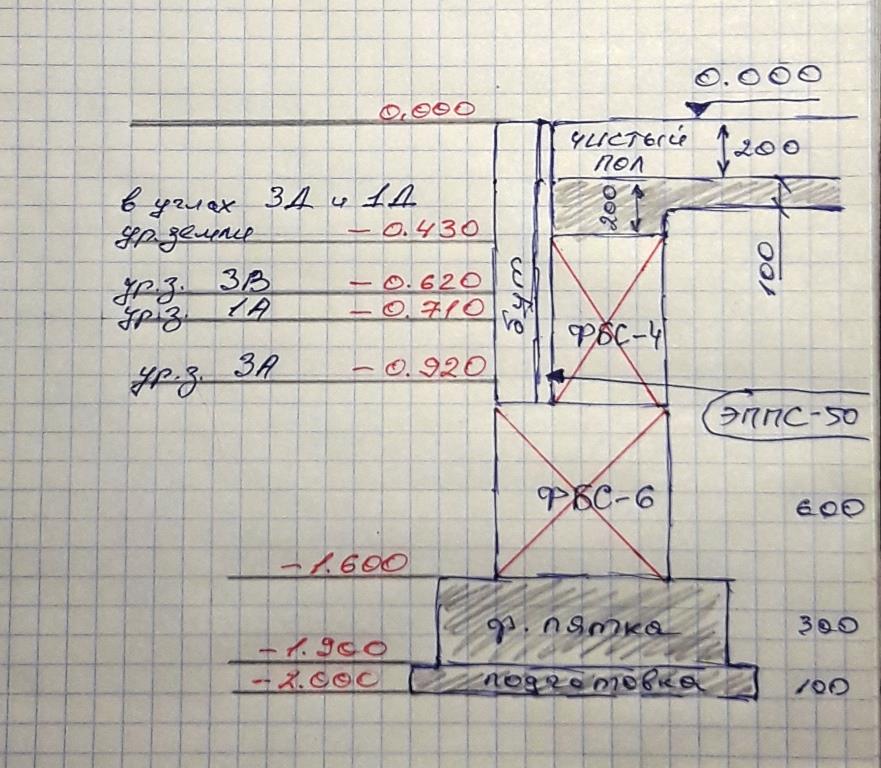 0.000
0.000
чистый
пол
200
в углах 3Д и 1Д
ур.земли - 0.430
200
100
ур.з. 3В - 0.620
ур.з. 1А - 0.710
бут
ФБС-4
ур.з. 3А - 0.920
ЭППС-50
ФБС-6
600
-1.600
ф. пятка
300
-1.900
-2.000
подготовка
100